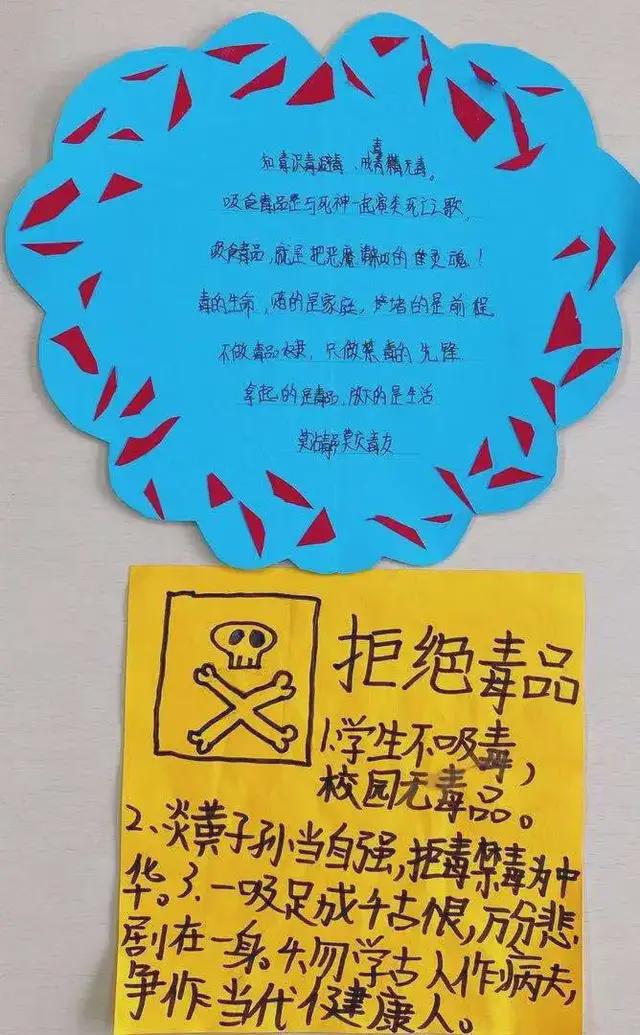 知毒识毒避毒，戒毒无毒。
吸食毒品是与死神一起演奏死亡之歌
吸食毒品，就是把恶魔的灵魂！
毒的生命，的是家庭，赌的是前程
不做毒品，只做禁毒的先锋
拿起的是毒品，放下的是生活
莫沾毒品莫交毒友
拒绝毒品
1.学生不吸毒，
校园无毒品。
2、炎黄子孙当自强，拒毒禁毒为中
华。3.一吸足成千古恨，万分悲
剧在一身。4.勿学古人作病夫，
争作当代健康人。